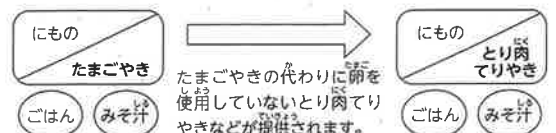 にもの
たまごやき
ごはん
みそ汁
たまごやきの代わりに卵を
使用していないとり肉てり
やきなどが提供されます。
にもの
とり肉
てりやき
ごはん
みそ汁